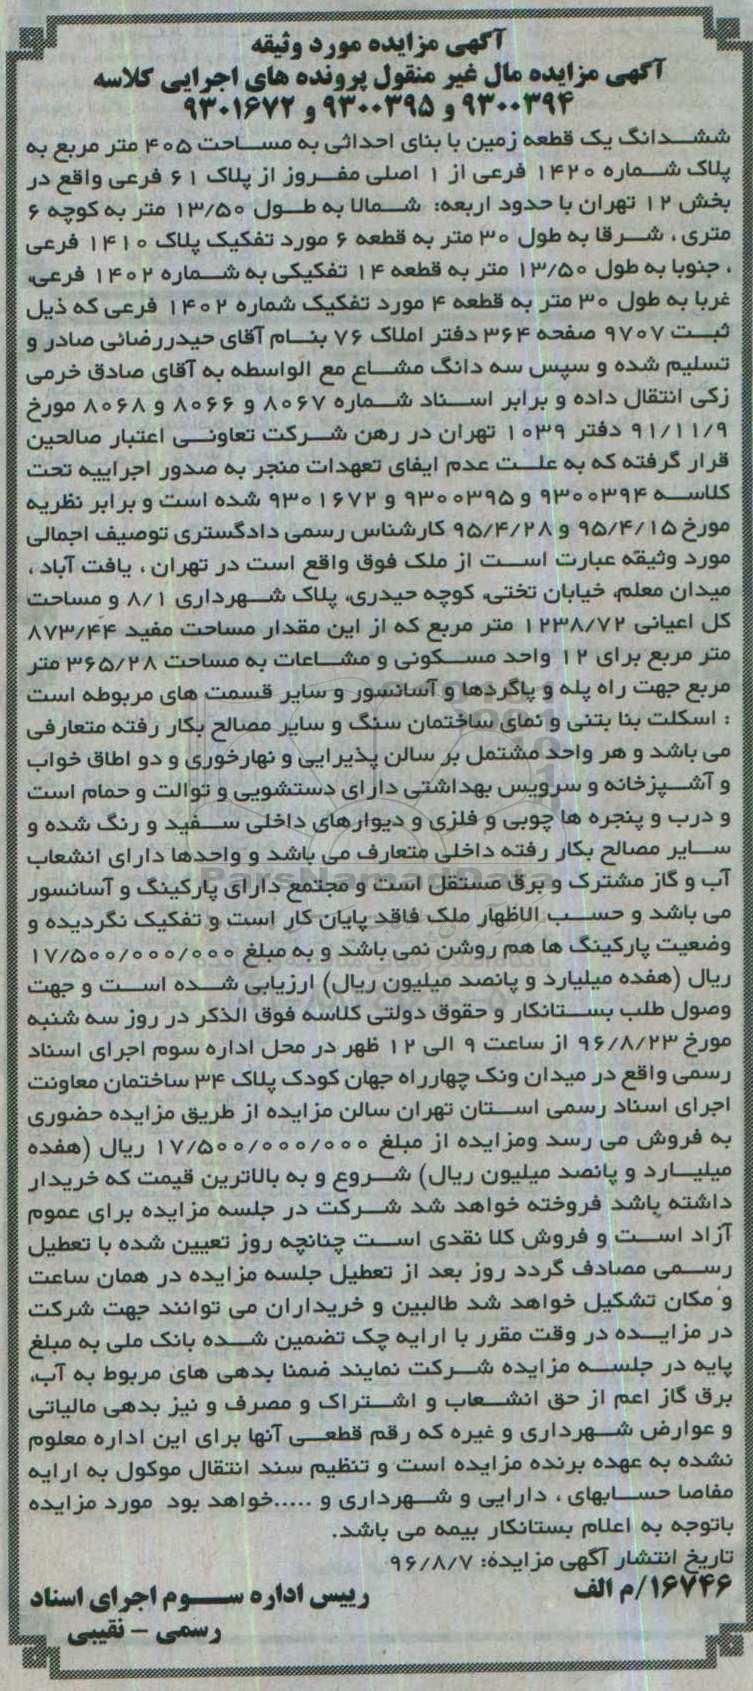 آگهی مزایده مورد وثیقه
آگهی مزایده مال غیر منقول پرونده های اجرایی کلاسه
۹۳۰۰۳۹۴ و ۹۳۰۰۳۹۵ و ۹۳۰۱۶۷۲
ششدانگ یک قطعه زمین با بنای احداثی به مساحت ۴۰۵ متر مربع به
پلاک شماره ۱۴۲۰ فرعی از ۱ اصلی مفروز از پلاک ۶۱ فرعی واقع در
بخش ۱۲ تهران با حدود اربعه: شمالا به طول ۱۳/۵۰ متر به کوچه ۶
متری ، شرقا به طول ۳۰ متر به قطعه ۶ مورد تفکیک پلاک ۱۴۱۰ فرعی
، جنوبا به طول ۱۳/۵۰ متر به قطعه ۱۴ تفکیکی به شماره ۱۴۰۲ فرعی،
غربا به طول ۳۰ متر به قطعه ۴ مورد تفکیک شماره ۱۴۰۲ فرعی که ذیل
ثبت ۹۷۰۷ صفحه ۳۶۴ دفتر املاک ۷۶ بنام آقای حیدررضائی صادر و
تسلیم شده و سپس سه دانگ مشاع مع الواسطه به آقای صادق خرمی
زکی انتقال داده و برابر اسناد شماره ۸۰۶۷ و ۸۰۶۶ و ۸۰۶۸ مورخ
۹۱/۱۱/۹ دفتر ۱۰۳۹ تهران در رهن شرکت تعاونی اعتبار صالحین
قرار گرفته که به علت عدم ایفای تعهدات منجر به صدور اجراییه تحت
کلاسه ۹۳۰۰۳۹۴ و ۹۳۰۰۳۹۵ و ۹۳۰۱۶۷۲ شده است و برابر نظریه
مورخ ۹۵/۴/۱۵ و ۹۵/۴/۲۸ کارشناس رسمی دادگستری توصیف اجمالی
مورد وثیقه عبارت است از ملک فوق واقع است در تهران ، یافت آباد ،
میدان معلم، خیابان تختی، کوچه حیدری، پلاک شهرداری ۸/۱ و مساحت
کل اعیانی ۱۲۳۸/۷۲ متر مربع که از این مقدار مساحت مفید ۸۷۳/۴۴
متر مربع برای ۱۲ واحد مسکونی و مشاعات به مساحت ۳۶۵/۲۸ متر
مربع جهت راه پله و پاگردها و آسانسور و سایر قسمت های مربوطه است
: اسکلت بنا بتنی و نمای ساختمان سنگ و سایر مصالح بکار رفته متعارفی
می باشد و هر واحد مشتمل بر سالن پذیرایی و نهارخوری و دو اطاق خواب
و آشپزخانه و سرویس بهداشتی دارای دستشویی و توالت و حمام است
و درب و پنجره ها چوبی و فلزی و دیوارهای داخلی سفید و رنگ شده و
سایر مصالح بکار رفته داخلی متعارف می باشد و واحدها دارای انشعاب
آب و گاز مشترک و برق مستقل است و مجتمع دارای پارکینگ و آسانسور
می باشد و حسب الاظهار ملک فاقد پایان کار است و تفکیک نگردیده و
وضعیت پارکینگ ها هم روشن نمی باشد و به مبلغ ۱۷/۵۰۰/۰۰۰/۰۰۰
ریال (هفده میلیارد و پانصد میلیون ریال) ارزیابی شده است و جهت
وصول طلب بستانکار و حقوق دولتی کلاسه فوق الذکر در روز سه شنبه
مورخ ۹۶/۸/۲۳ از ساعت ۹ الی ۱۲ ظهر در محل اداره سوم اجرای اسناد
رسمی واقع در میدان ونک چهارراه جهان کودک پلاک ۳۴ ساختمان معاونت
اجرای اسناد رسمی استان تهران سالن مزایده از طریق مزایده حضوری
به فروش می رسد ومزایده از مبلغ ۱۷/۵۰۰/۰۰۰/۰۰۰ ریال (هفده
میلیارد و پانصد میلیون ریال) شروع و به بالاترین قیمت که خریدار
داشته باشد فروخته خواهد شد شرکت در جلسه مزایده برای عموم
آزاد است و فروش کلا نقدی است چنانچه روز تعیین شده با تعطیل
رسمی مصادف گردد روز بعد از تعطیل جلسه مزایده در همان ساعت
و مکان تشکیل خواهد شد طالبین و خریداران می توانند جهت شرکت
در مزایده در وقت مقرر با ارایه چک تضمین شده بانک ملی به مبلغ
پایه در جلسه مزایده شرکت نمایند ضمنا بدهی های مربوط به آب،
برق گاز اعم از حق انشعاب و اشتراک و مصرف و نیز بدهی مالیاتی
و عوارض شهرداری و غیره که رقم قطعی آنها برای این اداره معلوم
نشده به عهده برنده مزایده است و تنظیم سند انتقال موکول به ارایه
مفاصا حسابهای ، دارایی و شهرداری و .....خواهد بود مورد مزایده
باتوجه به اعلام بستانکار بیمه می باشد.
تاریخ انتشار آگهی مزایده: ۹۶/۸/۷
۱۶۷۴۶/م الف
رییس اداره سوم اجرای اسناد
رسمی – نقیبی
ParsNamadData